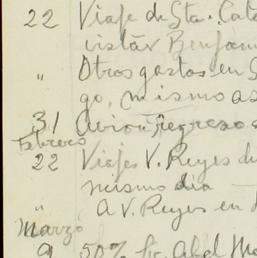 22 Viaje de Sta. Cata
vistar Benjam
" Otros gastos en S
go, mismo as
31 Avion regreso
Febrero
22 Viajes V. Reyes de
mismo dia
" A V. Reyes en
Marzo
9 50% Lic. Abel Mo